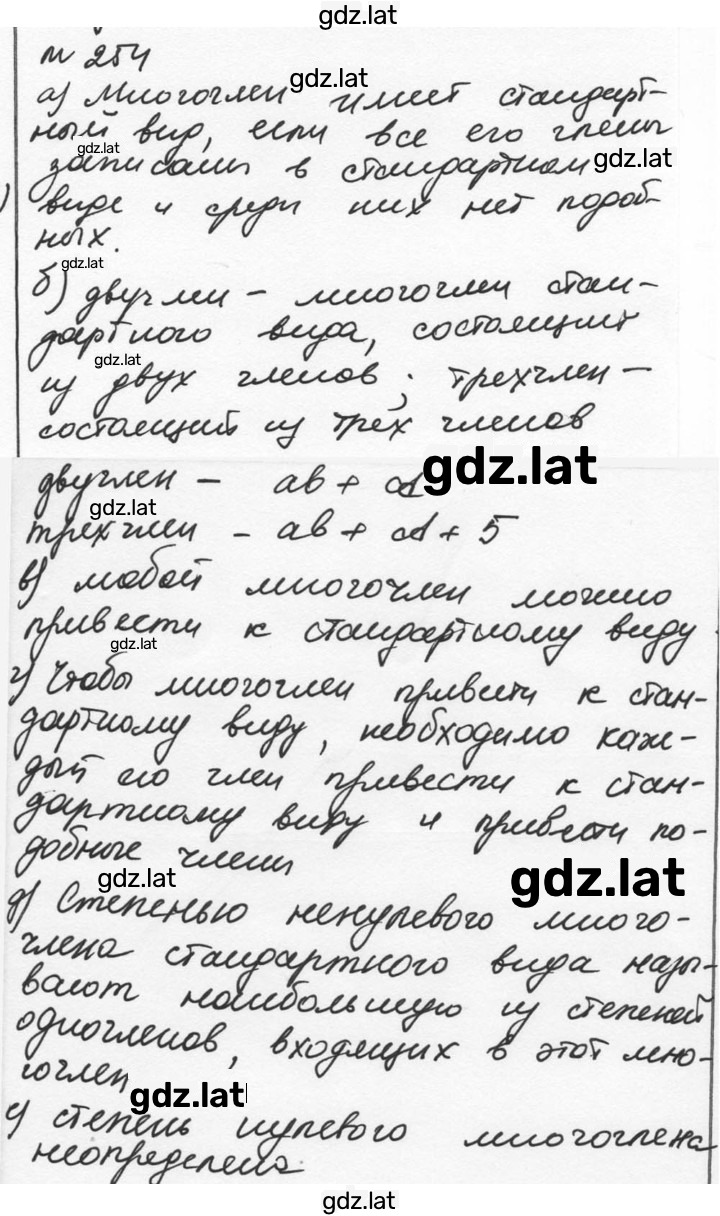 gdz.lat
№ 254
gdz.lat
а) Многочлен имеет стандарт-
ный вид, если все его члены
gdz.lat
записаны в стандартном
gdz.lat
виде и среди них нет подоб-
ных.
gdz.lat
б) двучлен - многочлен стан-
дартного вида, состоящий
gdz.lat
из двух членов; трехчлен -
состоящий из трёх членов
gdz.lat
двучлен - ab + cd
gdz.lat
трехчлен - ab + cd + 5
в) любой многочлен можно
привести к стандартному виду
gdz.lat
г) Чтобы многочлен привести к стан-
дартному виду, необходимо каж-
дый его член привести к стан-
дартному виду и привести по-
добные члены
gdz.lat
gdz.lat
д) Степенью ненулевого много-
члена стандартного вида назы-
вают наибольшую из степеней
одночленов, входящих в этот мно-
гочлен
gdz.lat
е) степень нулевого многочлена
неопределена.
gdz.lat